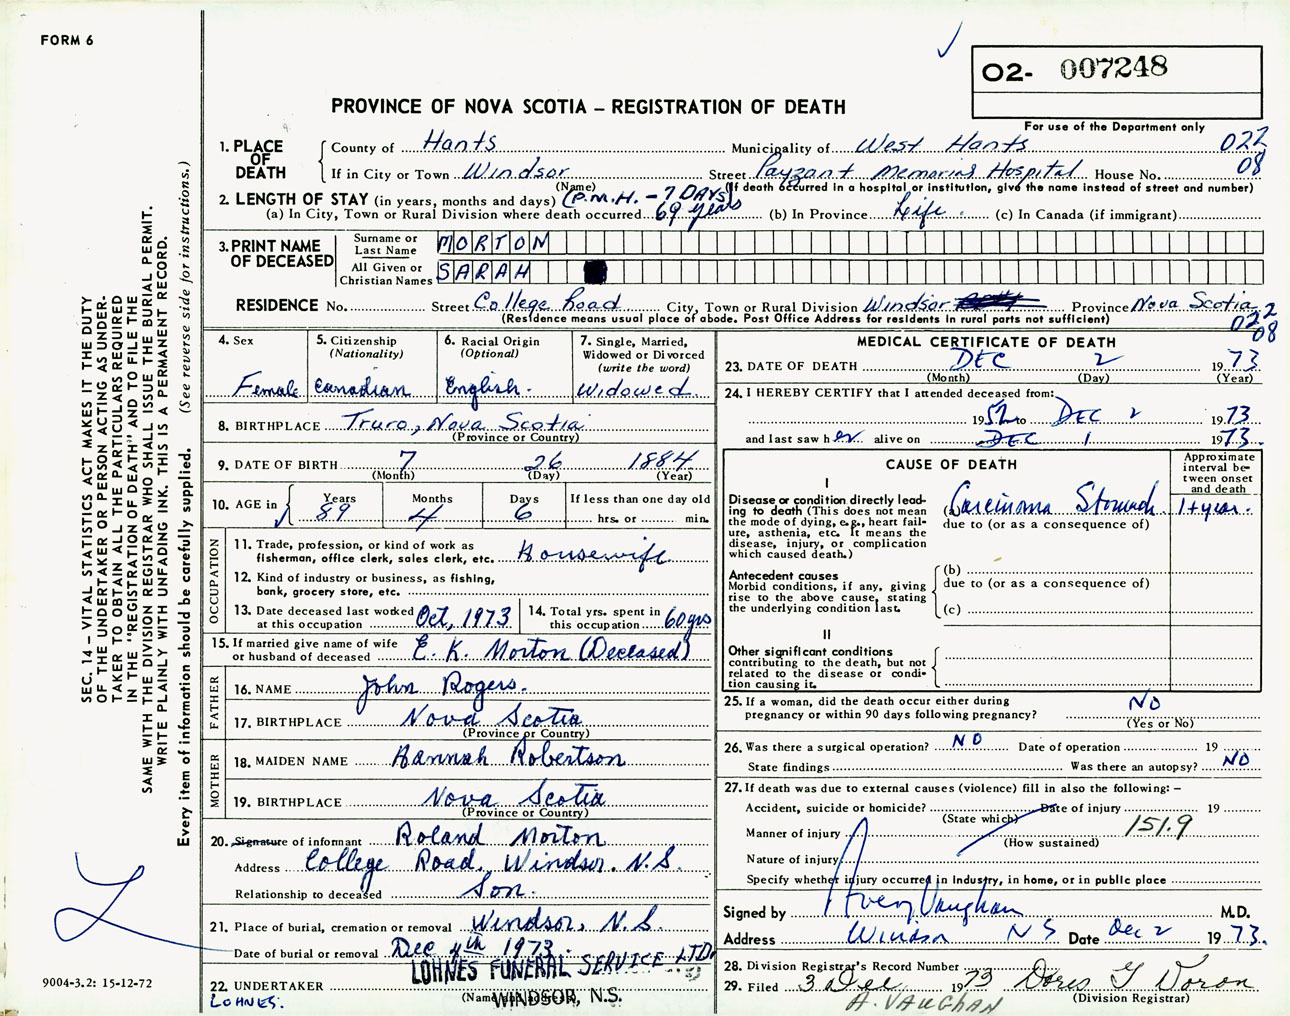 FORM 6
02- 007248
PROVINCE OF NOVA SCOTIA – REGISTRATION OF DEATH
For use of the Department only
1. PLACE OF DEATH
County of Hants Municipality of West Hants 022
If in City or Town Windsor Street Payzant Memorial Hospital House No. 08
(Name) (If death occurred in a hospital or institution, give the name instead of street and number)
2. LENGTH OF STAY (in years, months and days) (P.M.H. - 7 DAYS)
(a) In City, Town or Rural Division where death occurred 69 years (b) In Province Life. (c) In Canada (if immigrant)
3. PRINT NAME OF DECEASED
Surname or Last Name MORTON
All Given or Christian Names SARAH
RESIDENCE No. Street College Road City, Town or Rural Division Windsor Province Nova Scotia
(Residence means usual place of abode. Post Office Address for residents in rural parts not sufficient)
022
08
4. Sex Female
5. Citizenship (Nationality) Canadian
6. Racial Origin (Optional) English.
7. Single, Married, Widowed or Divorced (write the word) Widowed.
8. BIRTHPLACE Truro, Nova Scotia
(Province or Country)
9. DATE OF BIRTH 7 26 1884
(Month) (Day) (Year)
10. AGE in Years 89 Months 4 Days 6 If less than one day old hrs. or min.
OCCUPATION
11. Trade, profession, or kind of work as
fisherman, office clerk, sales clerk, etc. Housewife
12. Kind of industry or business, as fishing,
bank, grocery store, etc.
13. Date deceased last worked at this occupation Oct, 1973
14. Total yrs. spent in this occupation 60 yrs
15. If married give name of wife
or husband of deceased E. K. Morton (Deceased)
FATHER
16. NAME John Rogers.
17. BIRTHPLACE Nova Scotia
(Province or Country)
MOTHER
18. MAIDEN NAME Hannah Robertson
19. BIRTHPLACE Nova Scotia
(Province or Country)
20. Signature of informant Roland Morton
Address College Road, Windsor. N.S.
Relationship to deceased Son.
21. Place of burial, cremation or removal Windsor, N.S.
Date of burial or removal Dec 4th 1973.
22. UNDERTAKER LOHNES FUNERAL SERVICE LTD.
WINDSOR, N.S.
LOHNES.
MEDICAL CERTIFICATE OF DEATH
23. DATE OF DEATH DEC 2 1973
(Month) (Day) (Year)
24. I HEREBY CERTIFY that I attended deceased from:
1952 to DEC 2 1973
and last saw her alive on DEC 1 1973.
CAUSE OF DEATH
Approximate interval between onset and death
I
Disease or condition directly lead-
ing to death (This does not mean
the mode of dying, e.g., heart fail-
ure, asthenia, etc. It means the
disease, injury, or complication
which caused death.)
(a) Carcinoma Stomach 1+ year.
due to (or as a consequence of)
Antecedent causes
Morbid conditions, if any, giving
rise to the above cause, stating
the underlying condition last.
(b)
due to (or as a consequence of)
(c)
II
Other significant conditions
contributing to the death, but not
related to the disease or condi-
tion causing it.
25. If a woman, did the death occur either during
pregnancy or within 90 days following pregnancy? NO
(Yes or No)
26. Was there a surgical operation? NO Date of operation 19
State findings Was there an autopsy? NO
27. If death was due to external causes (violence) fill in also the following: –
Accident, suicide or homicide? Date of injury 19
(State which)
Manner of injury 151.9
(How sustained)
Nature of injury
Specify whether injury occurred in Industry, in home, or in public place
Signed by Avery Vaughan M.D.
Address Windsor N S Date Dec 2 1973.
28. Division Registrar's Record Number
29. Filed 3 Dec 1973 Doris Y Doran
(Division Registrar)
A. VAUGHAN
SEC. 14 – VITAL STATISTICS ACT MAKES IT THE DUTY
OF THE UNDERTAKER OR PERSON ACTING AS UNDER-
TAKER TO OBTAIN ALL THE PARTICULARS REQUIRED
IN THE "REGISTRATION OF DEATH" AND TO FILE THE
SAME WITH THE DIVISION REGISTRAR WHO SHALL ISSUE THE BURIAL PERMIT.
WRITE PLAINLY WITH UNFADING INK. THIS IS A PERMANENT RECORD.
Every item of information should be carefully supplied. (See reverse side for instructions.)
9004-3.2: 15-12-72